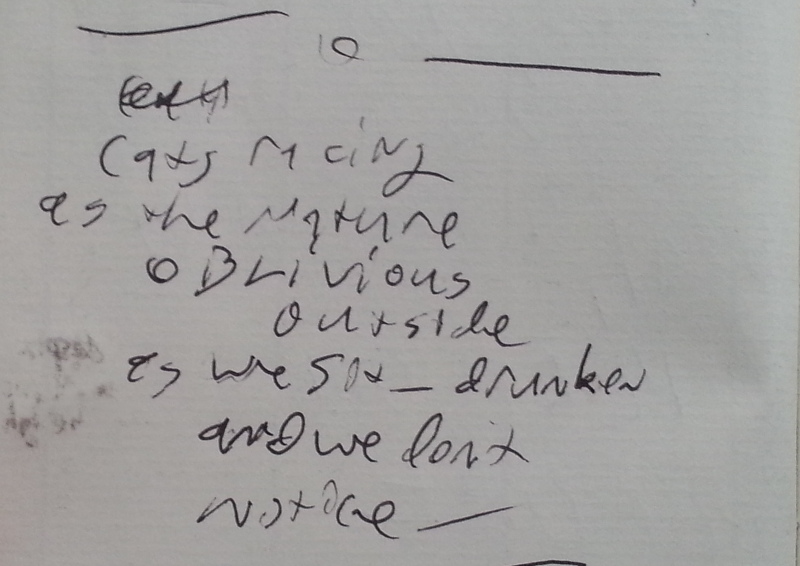 10
Cats racing
as the nature
OBLIVIOUS
outside
as we sit_ drunken
and we don't
notice —